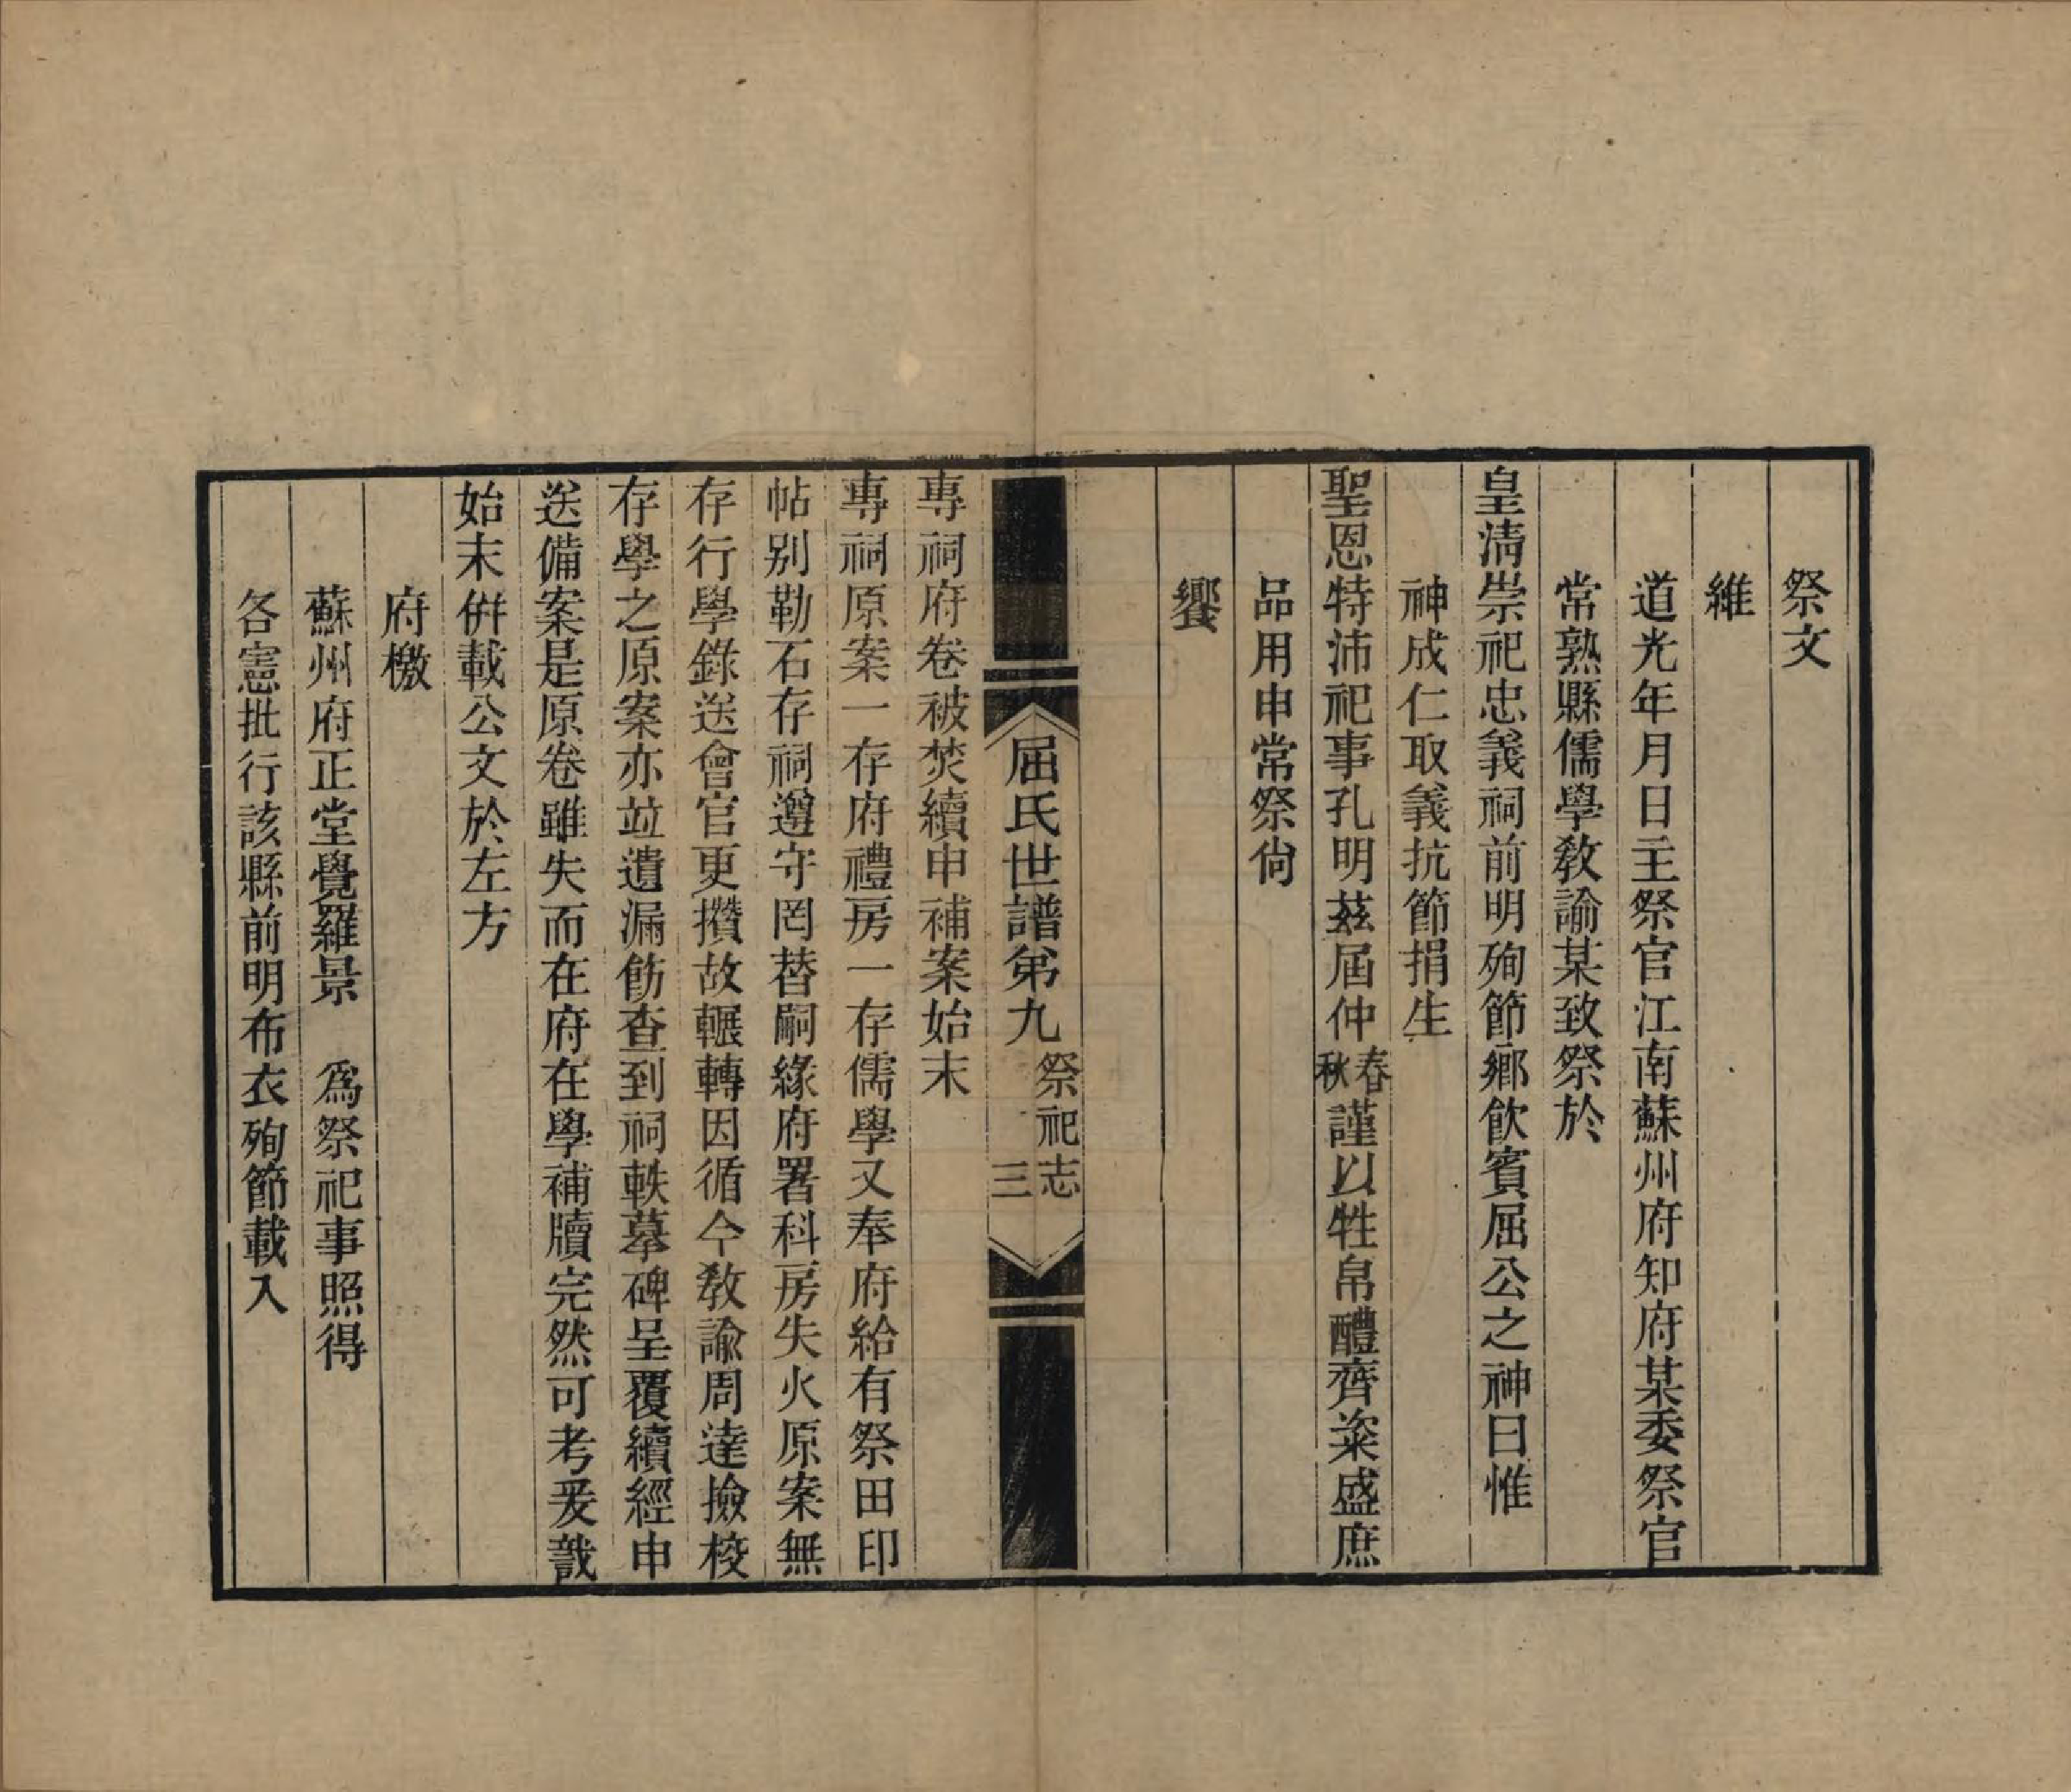 祭文
維
道光年月日主祭官江南蘇州府知府某委祭官
常熟縣儒學教諭某致祭於
皇清崇祀忠義祠前明殉節鄉飲賓屈公之神曰惟
神成仁取義抗節捐生
聖恩特沛祀事孔明茲屆仲春秋謹以牲帛醴齊粢盛庶
品用申常祭尙
饗
屈氏世譜弟九 祭祀志 三
專祠府卷被焚續申補案始末
專祠原案一存府禮房一存儒學又奉府給有祭田印
帖别勒石存祠遵守罔替嗣緣府署科房失火原案無
存行學錄送會官更攢故輾轉因循今敎諭周達撿校
存學之原案亦竝遺漏飭查到祠軼摹碑呈覆續經申
送備案是原卷雖失而在府在學補牘完然可考爰識
始末併載公文於左方
府檄
蘇州府正堂覺羅景 爲祭祀事照得
各憲批行該縣前明布衣殉節載入